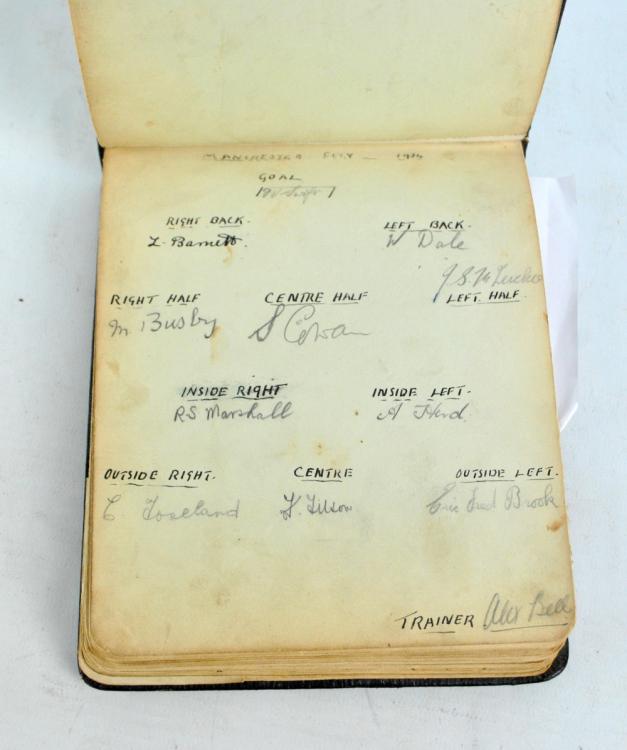 MANCHESTER CITY — 1934
GOAL
RIGHT BACK. LEFT BACK.
L. Barnett. W Dale
RIGHT HALF CENTRE HALF LEFT HALF.
M Busby S Cowan
INSIDE RIGHT INSIDE LEFT.
R S Marshall A Herd.
OUTSIDE RIGHT. CENTRE OUTSIDE LEFT.
E. Toseland F. Tilson Eric Fred Brook
TRAINER Alex Bell